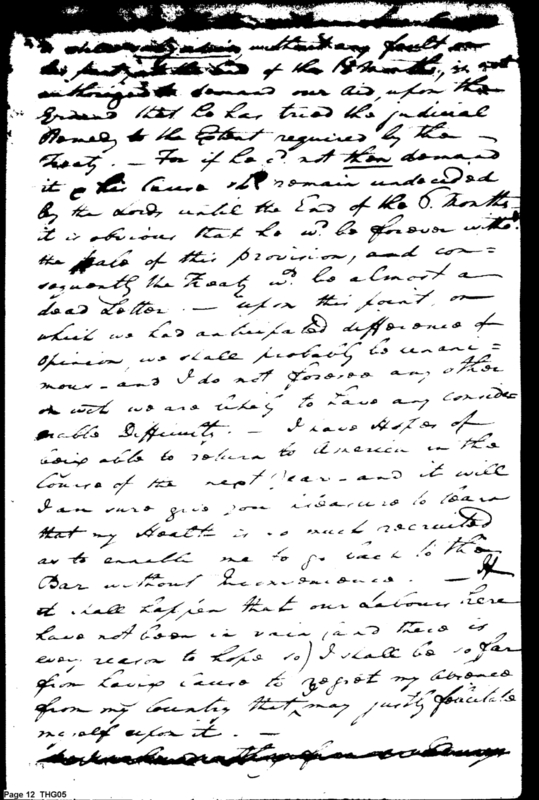 without any fault on
his part, at the End of the 18 Months, is not
authorized to demand our aid, upon the
Ground that he has tried the judicial
Remedy to the Extent required by the
Treaty. — For if he cd. not then demand
it & his Cause shd. remain undecided
by the Lords until the End of the 6 Months
it is obvious that he wd. be forever witht.
the pale of this provision, and con=
sequently the Treaty wd. be almost a
dead Letter. — upon this point, on
which we had anticipated difference of
opinion, we shall probably be unani=
mous — and I do not foresee any other
on wch. we are likely to have any consid=
erable Difficulty. — I have Hopes of
being able to return to America in the
Course of the next year — and it will
I am sure give you pleasure to learn
that my Health is so much recruited
as to enable me to go back to the
Bar without Inconvenience. — If
it shall happen that our Labours here
have not been in vain (and there is
every reason to hope so) I shall be so far
from having cause to regret my absence
from my Country that may justly felicitate
myself upon it. —
Page 12 THG05